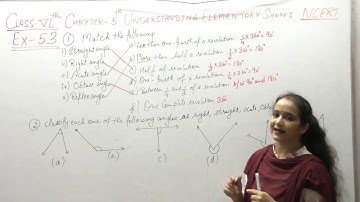 Class-VIth Chapter-5th Understanding Elementary Shapes NCERT
Ex-5.3
① Match the following
i) Straight angle
ii) Right angle
iii) Acute angle
iv) Obtuse angle
v) Reflex angle
a) Less than one-fourth of a revolution ¼ × 360° = 90°
b) More than half a revolution ½ × 360° = 180°
c) Half of revolution ½ × 360° = 180°
d) One-fourth of a revolution ¼ × 360° = 90°
e) Between ¼ and ½ of a revolution b/w 90° and 180°
f) One complete revolution 360°
② Classify each one of the following angles as right, straight, acute,
(a)
(b)
c)
(d)